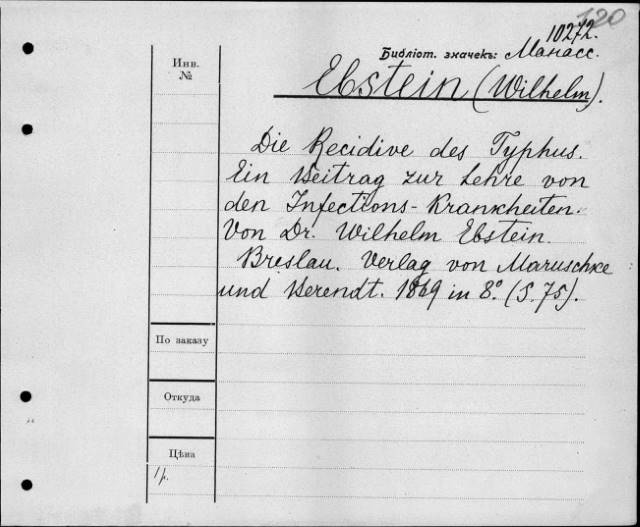 120
10272.
Инв.
№
Библіот. значекъ: Манасс.
Ebstein (Wilhelm).
Die Recidive des Typhus.
Ein Beitrag zur Lehre von
den Infections-Krankheiten.
Von Dr. Wilhelm Ebstein.
Breslau. Verlag von Maruschke
und Berendt. 1869 in 8º. (S. 75).
По заказу
Откуда
Цѣна
1 р.